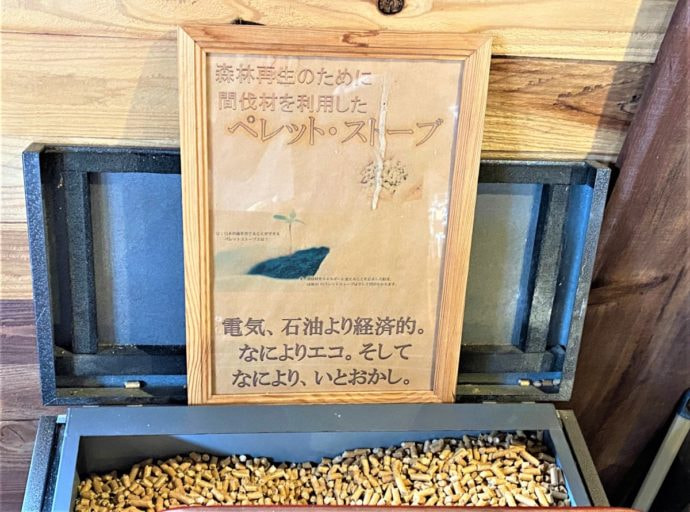 森林再生のために
間伐材を利用した
ペレット・ストーブ
電気、石油より経済的。
なによりエコ。そして
なにより、いとおかし。